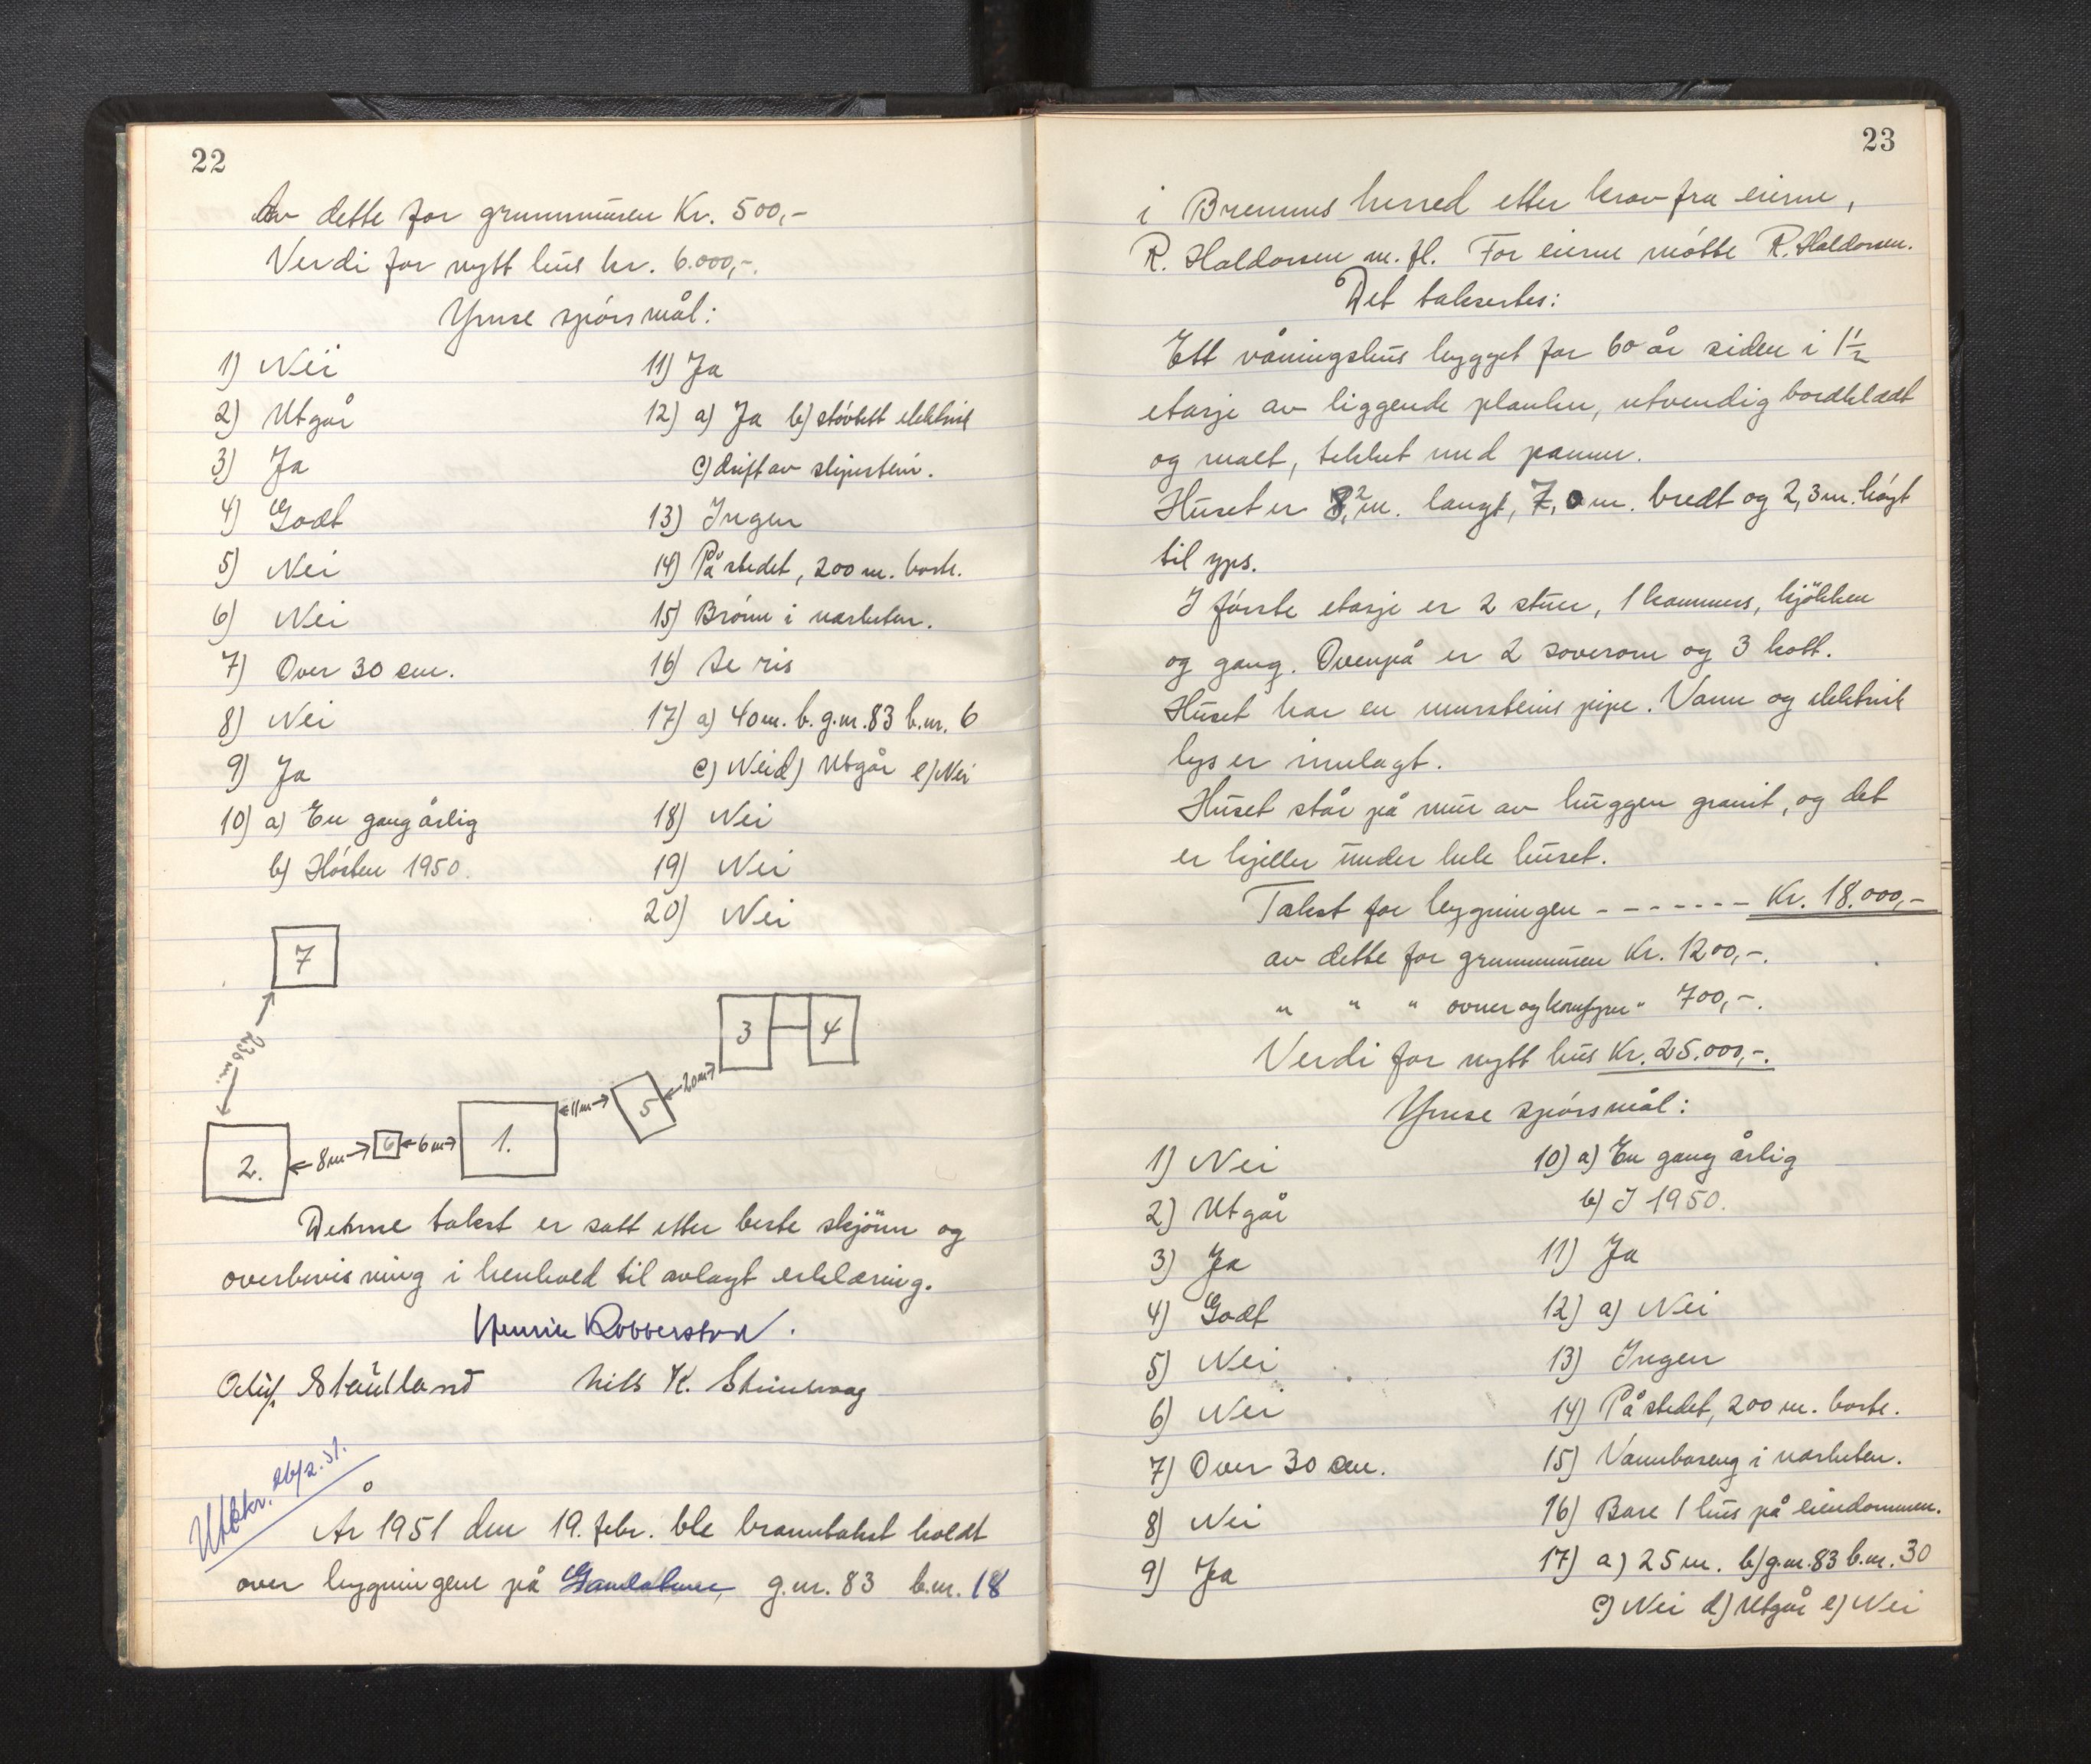 22
Av dette for grunnmuren Kr. 500,-
Verdi for nytt hus kr. 6.000,-.
Ymse spörsmål:
1) Nei
2) Utgår
3) Ja
4) Godt
5) Nei
6) Nei
7) Over 30 cm.
8) Nei
9) Ja
10) a) En gang årlig
b) Hösten 1950.
11) Ja
12) a) Ja b) stövtett elektrisk
c) drift av slipestein.
13) Ingen
14) På stedet, 200 m. borte.
15) Brönn i nærheten.
16) Se ris
17) a) 40 m. b. g.nr. 83 b.nr. 6
c) Nei d) Utgår e) Nei
18) Nei
19) Nei
20) Nei
7
230 m.
3 4
20 m
5
11 m
1.
6 m
6
8 m
2.
Denne takst er satt etter beste skjönn og
overbevisning i henhold til avlagt erklæring.
Henrik Robberstad.
Oluf Stautland Nils K. Steinsvaag
Utskr. 26/2. 51.
År 1951 den 19. febr. ble branntakst holdt
over bygningene på g.nr. 83 b.nr. 18
23
i Bremnes herred etter krav fra eierne,
R. Haldorsen m. fl. For eierne mötte R. Haldorsen.
Det takseres:
Ett våningshus bygget for 60 år siden i 1½
etasje av liggende planker, utvendig bordkledt
og malt, tekket med panner.
Huset er 8,2 m. langt, 7,0 m. bredt og 2,3 m. högt
til gps.
I förste etasje er 2 stuer, 1 kammers, kjökken
og gang. Ovenpå er 2 soverom og 3 kott.
Huset har en mursteins pipe. Vann og elektrisk
lys er innlagt.
Huset står på mur av huggen granit, og det
er kjeller under hele huset.
Takst for bygningen - - - - - - - Kr. 18.000,-
av dette for grunnmuren Kr. 1200,-.
" " " ovner og komfyrer " 700,-.
Verdi for nytt hus Kr. 25.000,-.
Ymse spörsmål:
1) Nei
2) Utgår
3) Ja
4) Godt
5) Nei
6) Nei
7) Over 30 cm.
8) Nei
9) Ja
10) a) En gang årlig
b) I 1950.
11) Ja
12) a) Nei
13) Ingen
14) På stedet, 200 m. borte.
15) Vannbaseng i nærheten.
16) Bare 1 hus på eiendommen.
17) a) 25 m. b) g.nr. 83 b.nr. 30
c) Nei d) Utgår e) Nei